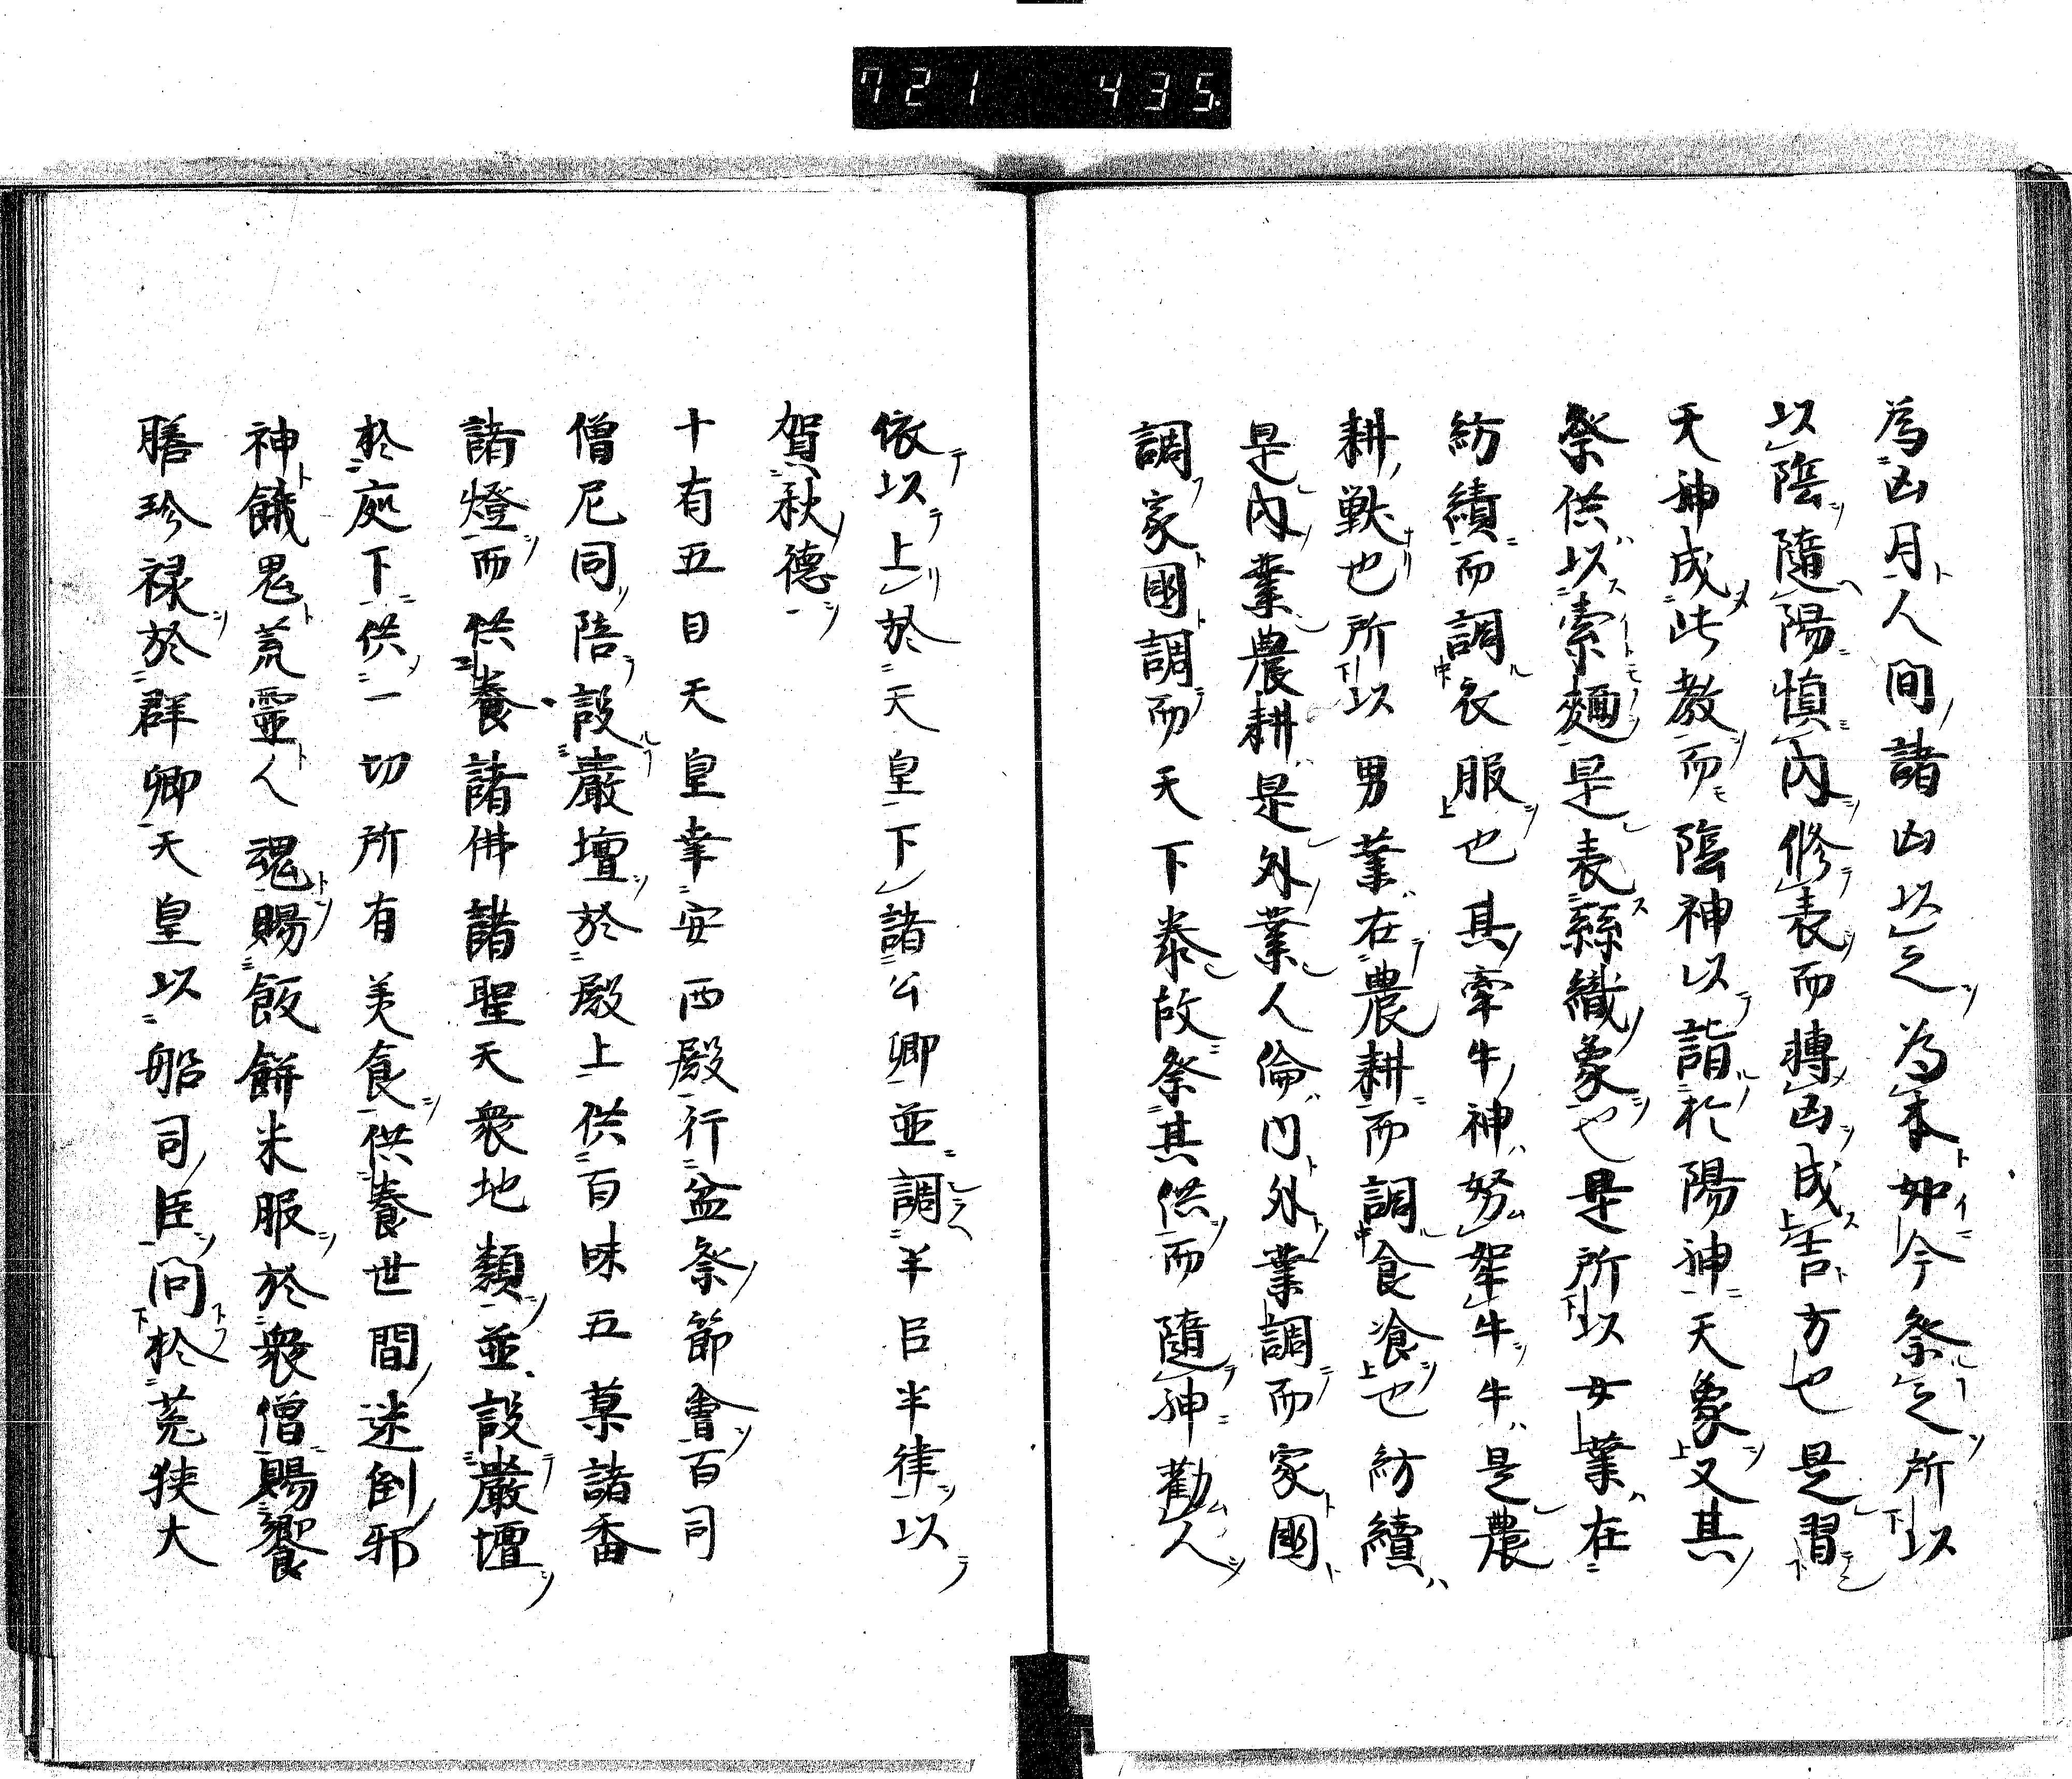 721 435.
為凶月人間諸凶以之為本如今祭之所以
以陰隨陽慎內修表而轉凶成吉方也是習
天神成此教而陰神以詣於陽神天象又其
祭供以索麵是表絲織象也是所以女業在
紡績而調衣服也其牽牛神努牽牛牛是農
耕獣也所以男業在農耕而調食飡也紡績
是內業農耕是外業人倫內外業調而家國
調家國調而天下泰故祭其供而隨神勸人
依以上於天皇下諸公卿並調羊呂半律以
賀秋德
十有五日天皇幸安西殿行盆祭節會百司
僧尼同陪設嚴壇於殿上供百味五菓諸番
諸燈而供養諸佛諸聖天衆地類並設嚴壇
於庭下供一切所有美食供養世間迷倒邪
神餓鬼荒靈人魂賜飯餅米服於衆僧賜饗
膳珍祿於群卿天皇以船司臣問於菟狭大